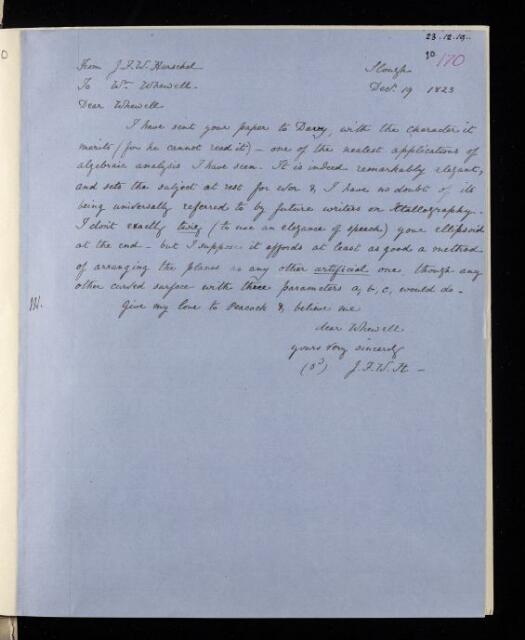 23.12.19.
70
170
From J.F.W. Herschel Slough
To Wm Whewell. Decr. 19 1823
Dear Whewell
I have sent your paper to Davy, with the character it
merits (for he cannot read it) – one of the neatest applications of
algebraic analysis I have seen. It is indeed remarkably elegant,
and sets the subject at rest for ever & I have no doubt of its
being universally referred to by future writers on Xtallography.
I don't exactly twig (to use an elegance of speech) your ellipsoid
at the end – but I suppose it affords at least as good a method
of arranging the planes as any other artificial one, though any
other curved surface with three parameters a, b, c, would do –
Give my love to Peacock & believe me
dear Whewell
yours very sincerely
(sd) J.F.W.H. –